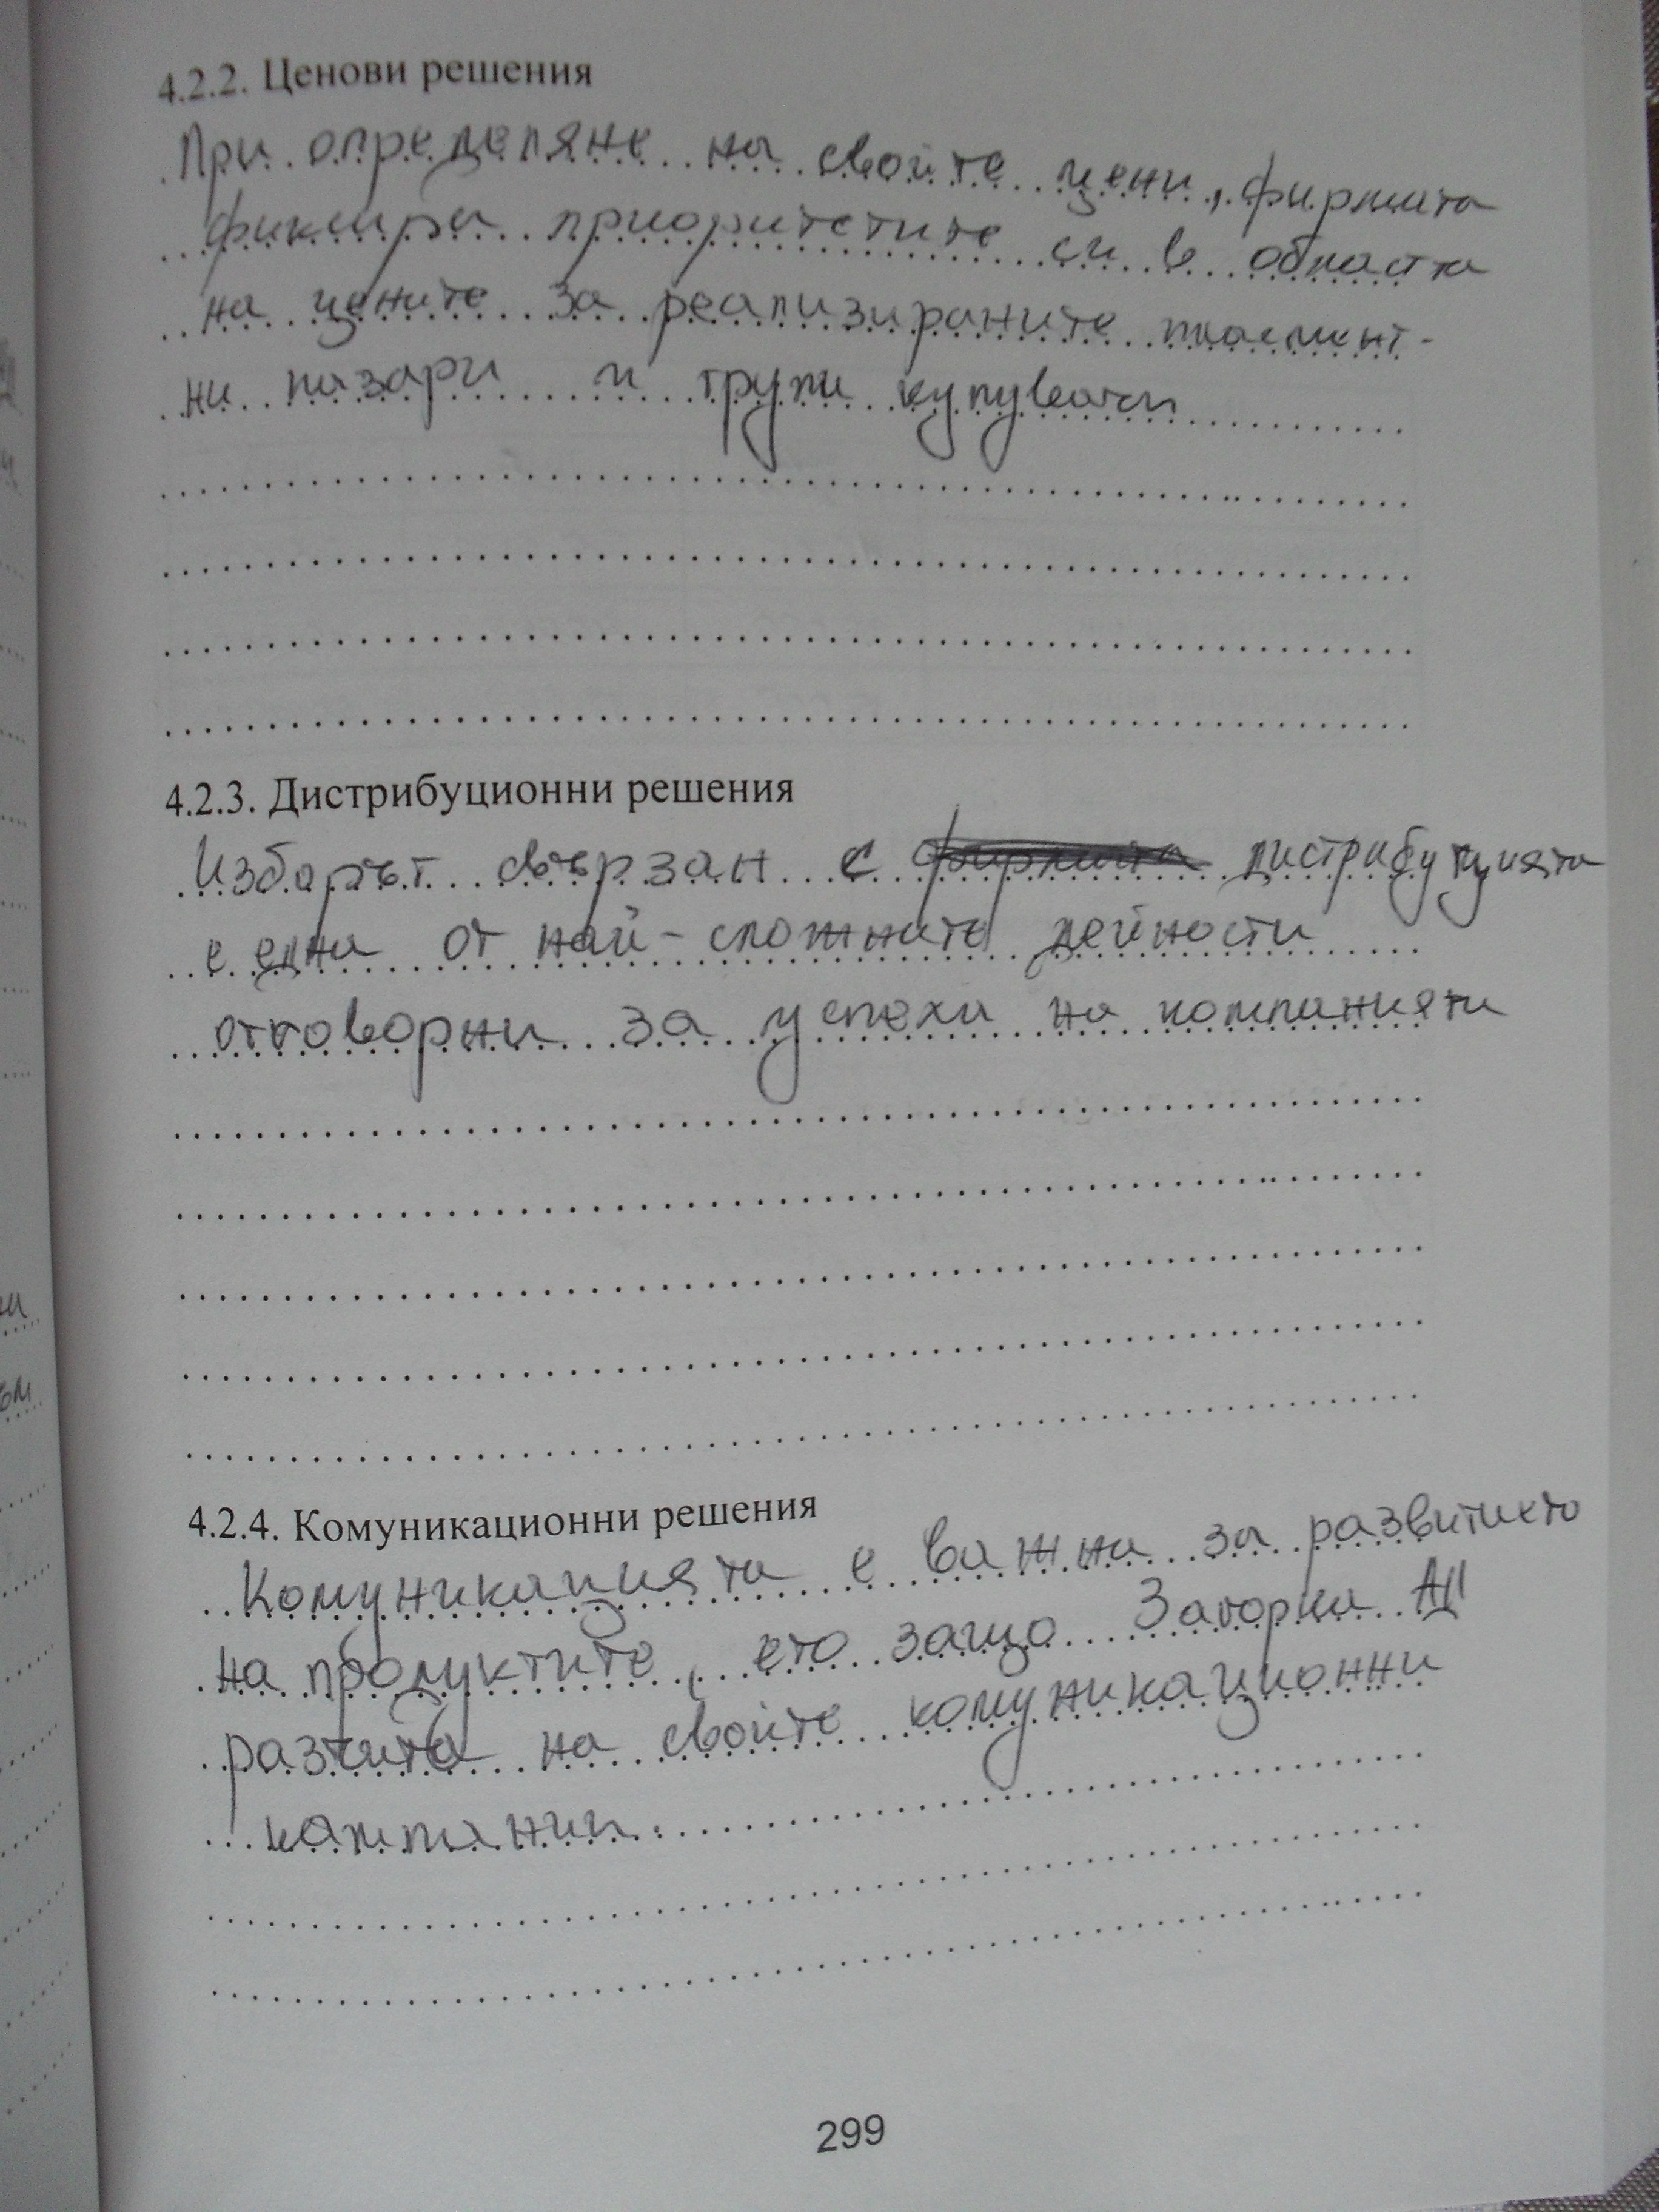 4.2.2. Ценови решения
При определяне на свойте цени, фирмата
фиксира приоритетите си в областа
на цените за реализираните
ни пазари и групи купувачи
4.2.3. Дистрибуционни решения
Изборът свързан с дистрибуцията
е една от най-сложните дейности
отговорни за успеха на компанията
4.2.4. Комуникационни решения
Комуникацията е важна за развитието
на продуктите, ето защо Загорка АД
разчита на свойте комуникационни
кампании.
299